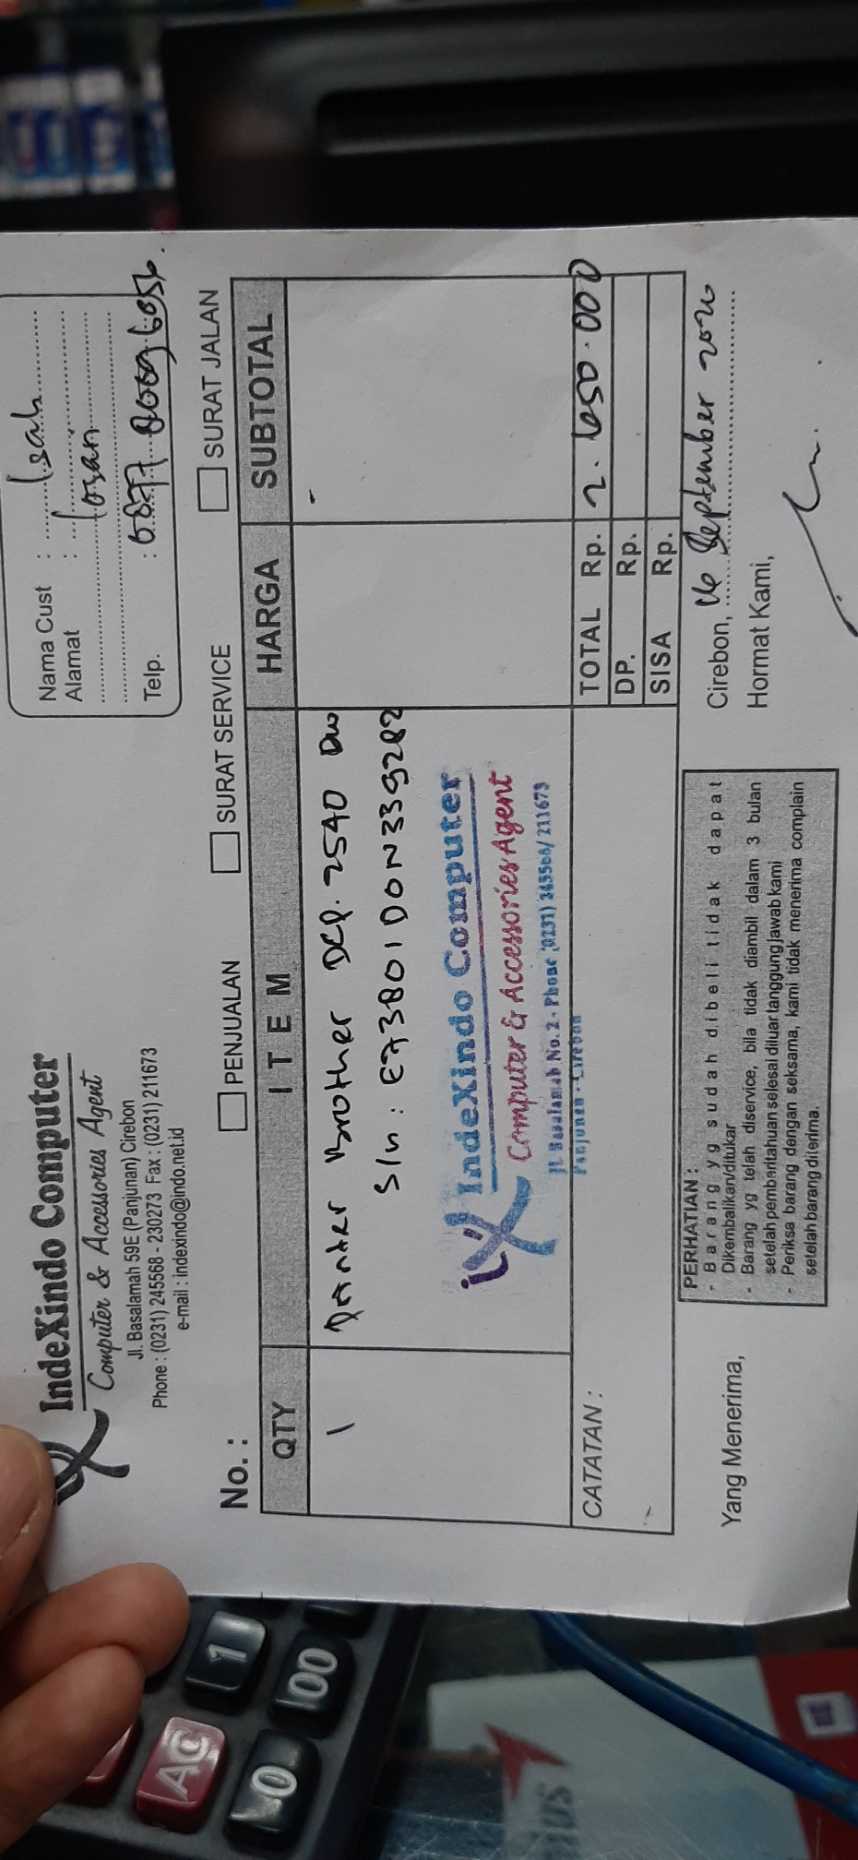 IndeXindo Computer
Computer & Accessories Agent
Jl. Basalamah 59E (Panjunan) Cirebon
Phone : (0231) 245568 - 230273 Fax : (0231) 211673
e-mail : indexindo@indo.net.id
Nama Cust : Isah
Alamat : Losari
Telp. :
No. :
PENJUALAN
SURAT SERVICE
SURAT JALAN
QTY ITEM HARGA SUBTOTAL
1 Printer Brother DCP. 2540 DW -
S/N : E73801D0N339282
IndeXindo Computer
Computer & Accessories Agent
Jl. Basalamah No. 2 - Phone (0231) / 211673
Panjunan - Cirebon
CATATAN :
TOTAL Rp. 2.650.000
DP. Rp.
SISA Rp.
Cirebon, September 2020
Yang Menerima,
Hormat Kami,
PERHATIAN :
- Barang yg sudah dibeli tidak dapat
Dikembalikan/ditukar
- Barang yg telah diservice, bila tidak diambil dalam 3 bulan
setelah pemberitahuan selesai diluar tanggung jawab kami
- Periksa barang dengan seksama, kami tidak menerima complain
setelah barang diterima.
AC
1
0
00